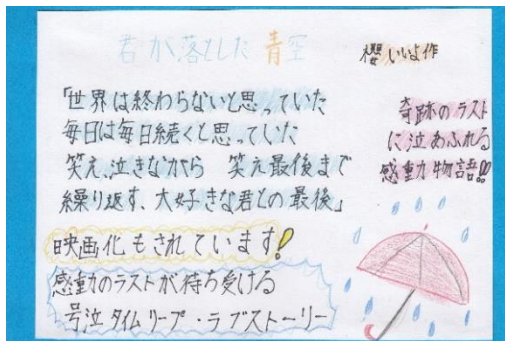 君が落とした青空
櫻いいよ作
「世界は終わらないと思っていた
毎日は毎日続くと思っていた
笑え、泣きながら 笑え最後まで
繰り返す、大好きな君との最後」
奇跡のラスト
に泣あふれる
感動物語!!
映画化もされています!
感動のラストが待ち受ける
号泣タイムリープ・ラブストーリー